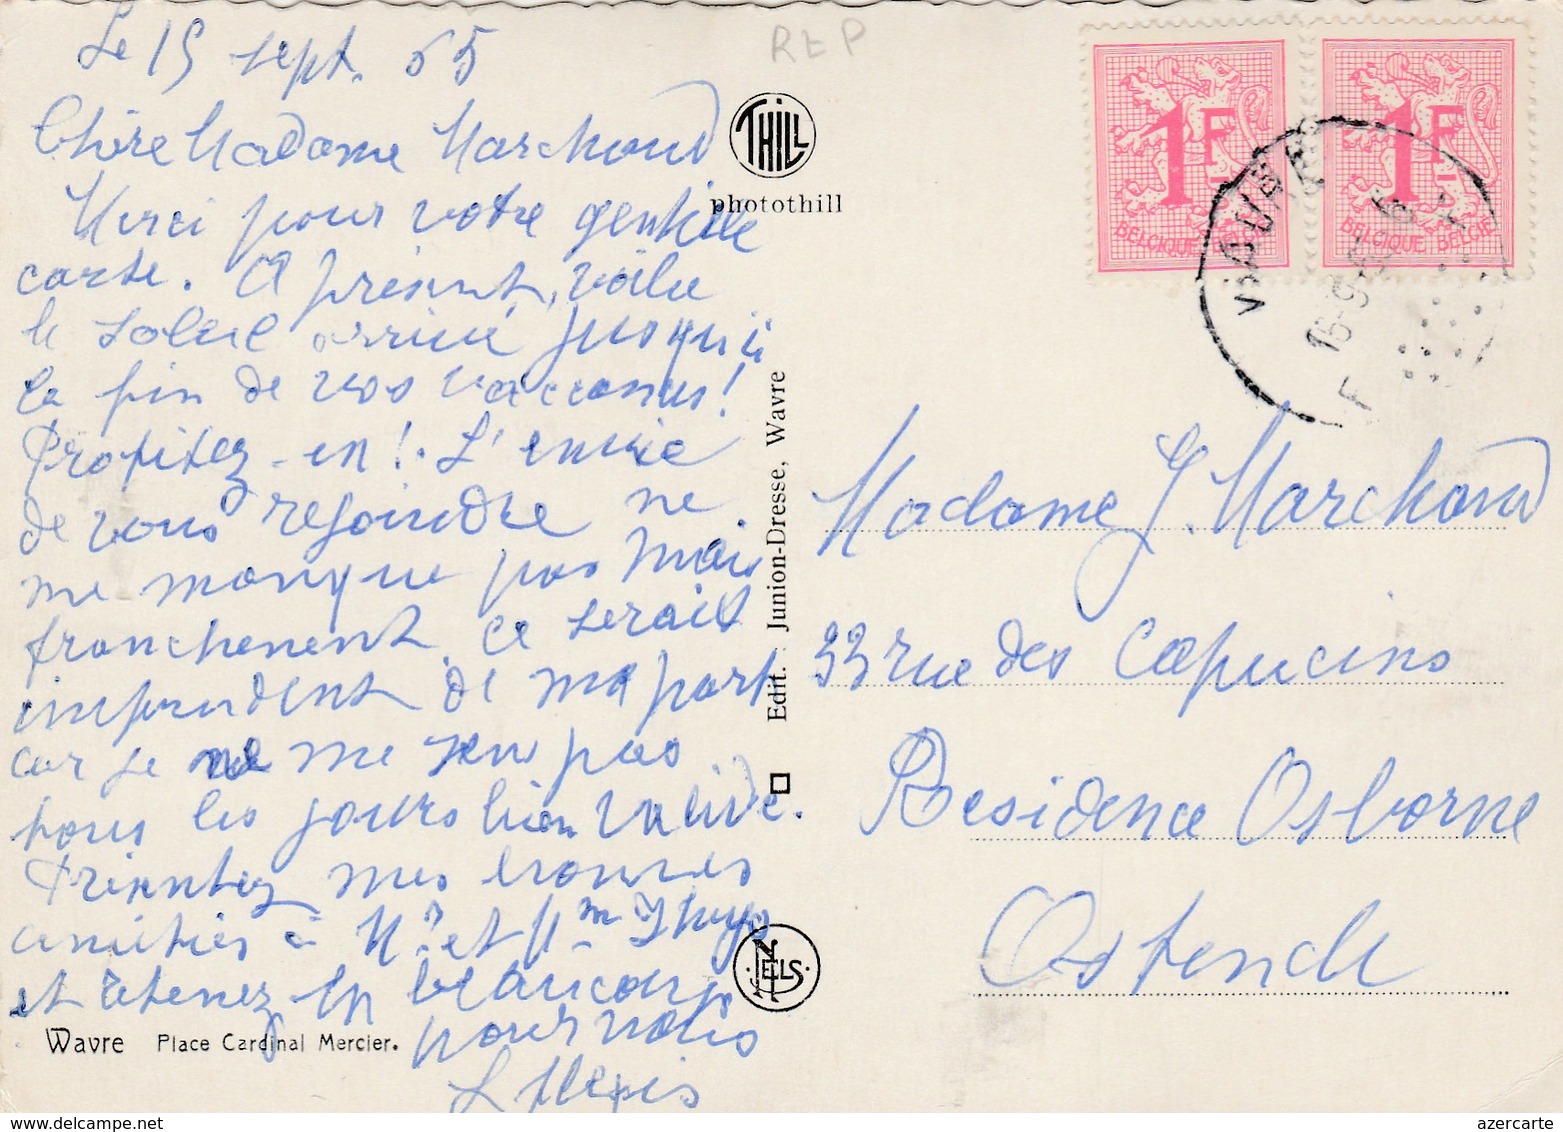 Le 15 sept. 65
Chère Madame Marchand
Merci pour votre gentille
carte. A présent, voila
le soleil arrivé jusqu'à
la fin de vos vacances!
Profitez-en! L'envie
de vous rejoindre ne
me manque pas mais
franchement ce serait
imprudent de ma part
car je ne me sens pas
tous les jours bien valide.
Présentez mes bonnes
amitiés à Mr et Mme
et retenez en beaucoup
pour vous
REP
THILL
photothill
Edit. Junion-Dresse, Wavre
NELS
Wavre Place Cardinal Mercier.
1F
BELGIQUE BELGIE
1F
BELGIQUE BELGIE
WAVRE
16-9-65
Madame J. Marchand
33 rue des Capucins
Residence Osborne
Ostende
www.delcampe.net
azercarte